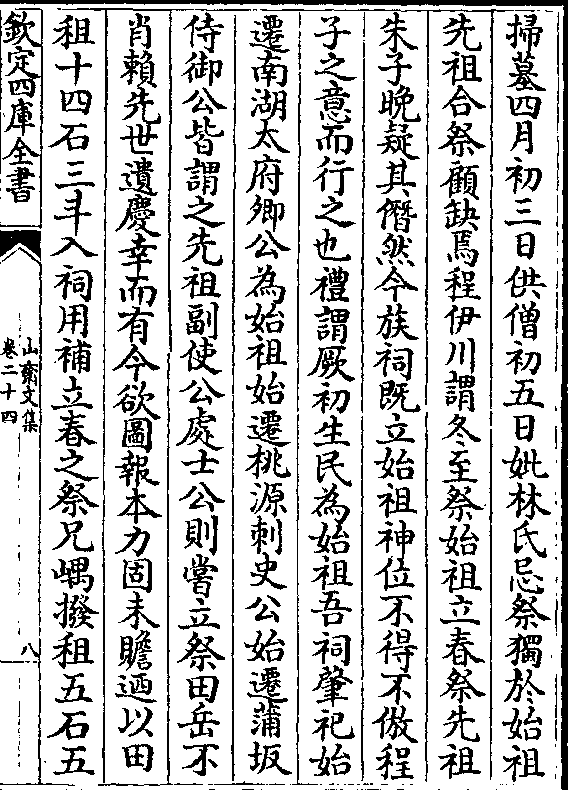 掃墓四月初三日供僧初五日妣林氏忌祭獨於始祖
先祖合祭顧缺焉程伊川謂冬至祭始祖立春祭先祖
朱子晚疑其僭然今族祠既立始祖神位不得不倣程
子之意而行之也禮謂厥初生民為始祖吾祠肇祀始
遷南湖太府卿公為始祖始遷桃源刺史公始遷蒲坂
侍御公皆謂之先祖副使公處士公則嘗立祭田岳不
肖賴先世遺慶幸而有今欲圖報本力固未贍廼以田
租十四石三斗入祠用補立春之祭兄嵎撥租五石五
欽定四庫全書
山齋文集
卷二十四
八